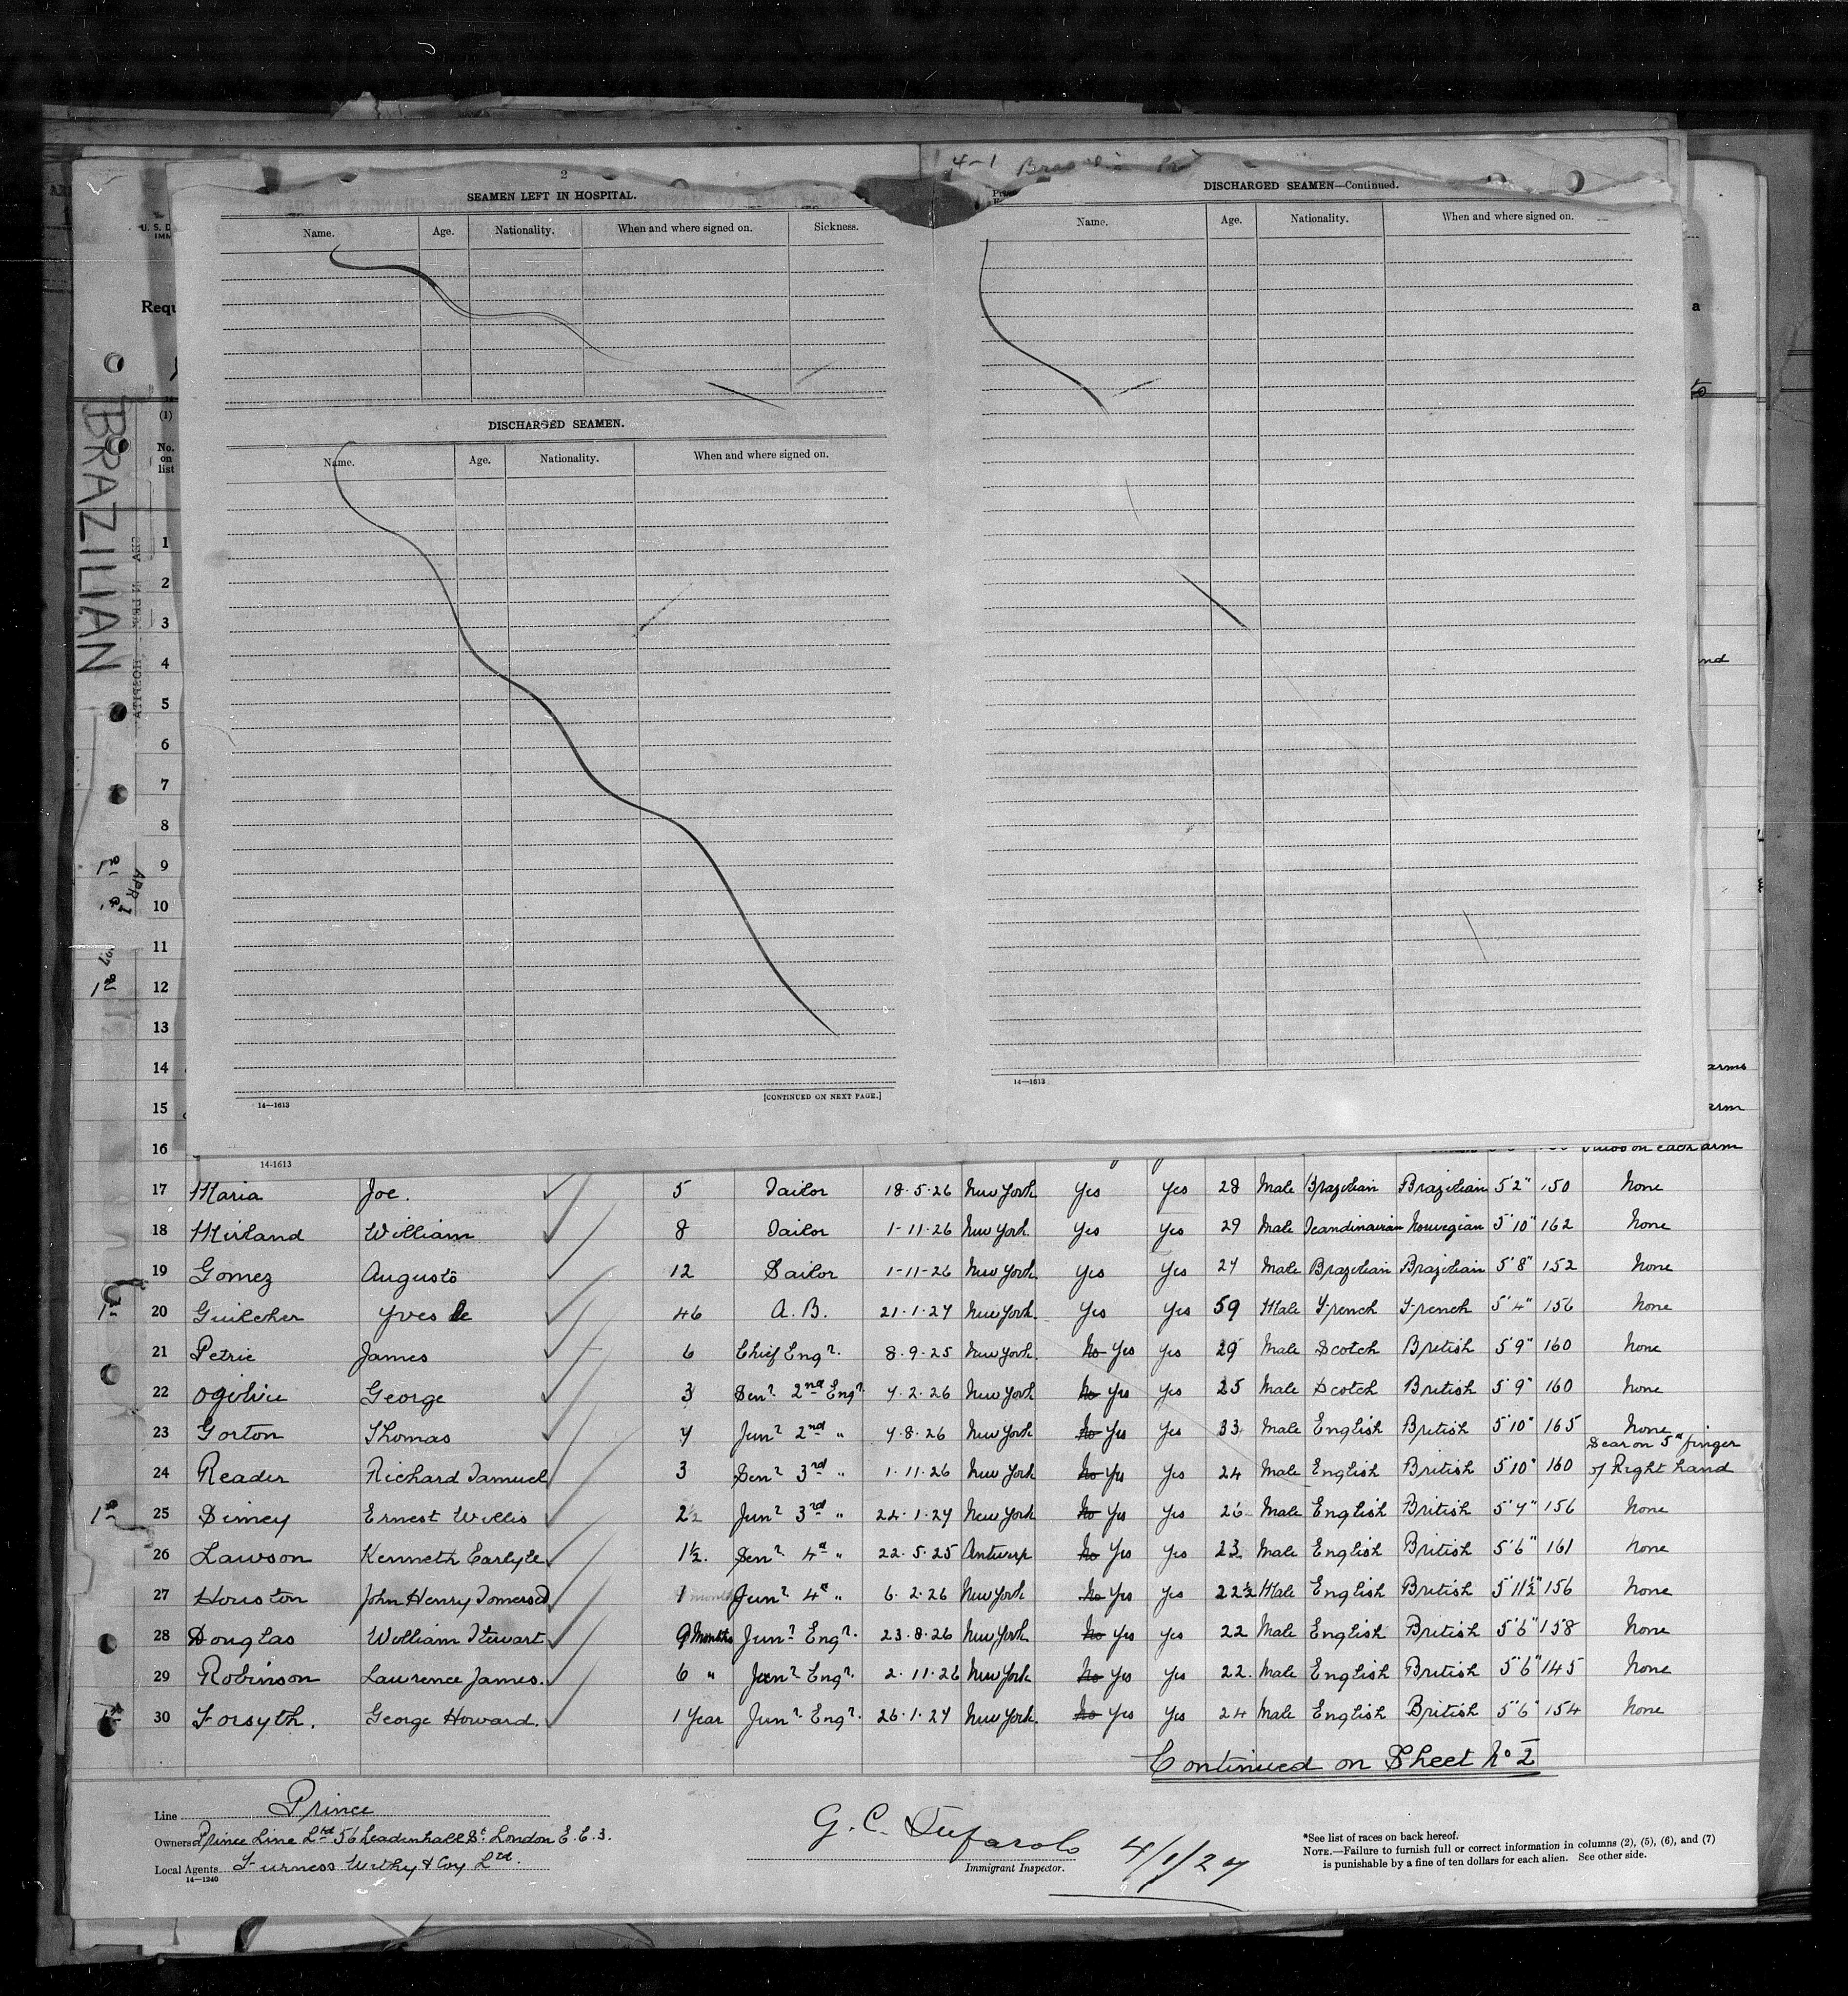 4-1
2
SEAMEN LEFT IN HOSPITAL.
Name. Age. Nationality. When and where signed on. Sickness.
DISCHARGED SEAMEN.
Name. Age. Nationality. When and where signed on.
14—1613 [CONTINUED ON NEXT PAGE.]
DISCHARGED SEAMEN—Continued.
Name. Age. Nationality. When and where signed on.
14—1613
14-1613
U. S. D
IMM
Requ
a
to
(1)
No.
on
list
BRAZILIAN
APR 1
1
2
3
nd
4
5
6
7
8
9
10
11
12
13
14 arms
15 arm
16 on each arm
17 Maria Joe. 5 Sailor 18·5·26 New York Yes Yes 28 Male Brazilian Brazilian 5'2" 150 None
18 Mirland William 8 Sailor 1-11·26 New York. Yes Yes 29 Male Scandinavian Norwegian 5'10" 162 None
19 Gomez Augusto 12 Sailor 1-11-26 New York Yes Yes 27 Male Brazilian Brazilian 5'8" 152 None
1st 20 Guilcher Yves le 46 A.B. 21·1·27 New York Yes Yes 59 Male French French 5'4" 156 None
21 Petrie James 6 Chief Engr. 8·9·25 New York. No Yes Yes 29 Male Scotch British 5'9" 160 None
22 Ogilvie George 3 Senr 2nd Engr 7·2·26 New York No Yes Yes 25 Male Scotch British 5'9" 160 None
23 Gorton Thomas 7 Junr 2nd " 7·8·26 New York No Yes Yes 33 Male English British 5'10" 165 None
24 Reader Richard Samuel 3 Senr 3rd " 1·11·26 New York No Yes Yes 24 Male English British 5'10" 160 Scar on 5th finger
of Right hand
1st 25 Simey Ernest Willis 2½ Junr 3rd " 24·1·27 New York No Yes Yes 26 Male English British 5'7" 156 None
26 Lawson Kenneth Carlyle 1½. Senr 4th " 22·5·25 Antwerp No Yes Yes 23 Male English British 5'6" 161 None
27 Houston John Henry Somerset 1 month Junr 4th " 6·2·26 New York No Yes Yes 22½ Male English British 5'11½" 156 None
28 Douglas William Stewart 9 Months Junr Engr. 23·8·26 New York No Yes Yes 22 Male English British 5'6" 158 None
29 Robinson Lawrence James. 6 " Junr Engr. 2·11·26 New York No Yes Yes 22. Male English British 5'6" 145 None
30 Forsyth. George Howard. 1 Year Junr Engr. 26·1·27 New York. No Yes Yes 24 Male English British 5'6" 154 None
Continued on Sheet No 2
Line Prince
Owners Prince Line Ltd 56 Leadenhall St London E.C.3.
Local Agents Furness Withy & Coy Ltd.
14—1240
Immigrant Inspector. 4/1/27
*See list of races on back hereof.
NOTE.—Failure to furnish full or correct information in columns (2), (5), (6), and (7)
is punishable by a fine of ten dollars for each alien. See other side.